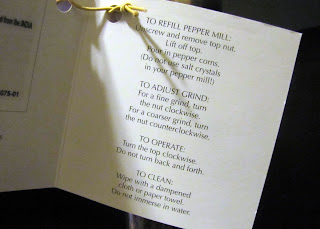 from the INDIA
075-01
TO REFILL PEPPER MILL:
Unscrew and remove top nut.
Lift off top.
Pour in pepper corns.
(Do not use salt crystals
in your pepper mill!)
TO ADJUST GRIND:
For a fine grind, turn
the nut clockwise.
For a coarser grind, turn
the nut counterclockwise.
TO OPERATE:
Turn the top clockwise.
Do not turn back and forth.
TO CLEAN:
Wipe with a dampened
cloth or paper towel.
Do not immerse in water.